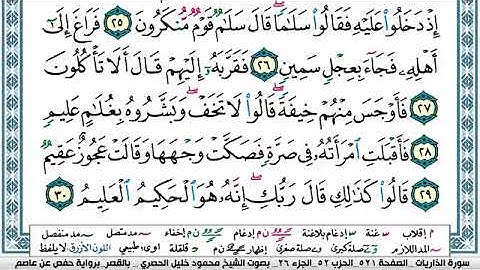 إِذْ دَخَلُوا۟ عَلَيْهِ فَقَالُوا۟ سَلَٰمًا ۖ قَالَ سَلَٰمٌ قَوْمٌ مُّنكَرُونَ ٢٥ فَرَاغَ إِلَىٰٓ
أَهْلِهِۦ فَجَآءَ بِعِجْلٍ سَمِينٍ ٢٦ فَقَرَّبَهُۥٓ إِلَيْهِمْ قَالَ أَلَا تَأْكُلُونَ
٢٧ فَأَوْجَسَ مِنْهُمْ خِيفَةً ۖ قَالُوا۟ لَا تَخَفْ ۖ وَبَشَّرُوهُ بِغُلَٰمٍ عَلِيمٍ
٢٨ فَأَقْبَلَتِ ٱمْرَأَتُهُۥ فِى صَرَّةٍ فَصَكَّتْ وَجْهَهَا وَقَالَتْ عَجُوزٌ عَقِيمٌ
٢٩ قَالُوا۟ كَذَٰلِكِ قَالَ رَبُّكِ ۖ إِنَّهُۥ هُوَ ٱلْحَكِيمُ ٱلْعَلِيمُ ٣٠
م إقلاب ـ غنة ـ إدغام بلاغنة ن م إدغام ن م إخفاء ـ مد متصل ـ مد منفصل
ـ المد اللازم ـ صلة كبرى ـ صلة صغرى إظهار ن م ـ قلقلة اوى: طبيعي اللون الأزرق: لا يلفظ
سورة الذاريات _ الصفحة ٥٢١ _ الحزب ٥٢ _ الجزء ٢٦ _ بصوت الشيخ محمود خليل الحصري _ بالقصر_ برواية حفص عن عاصم